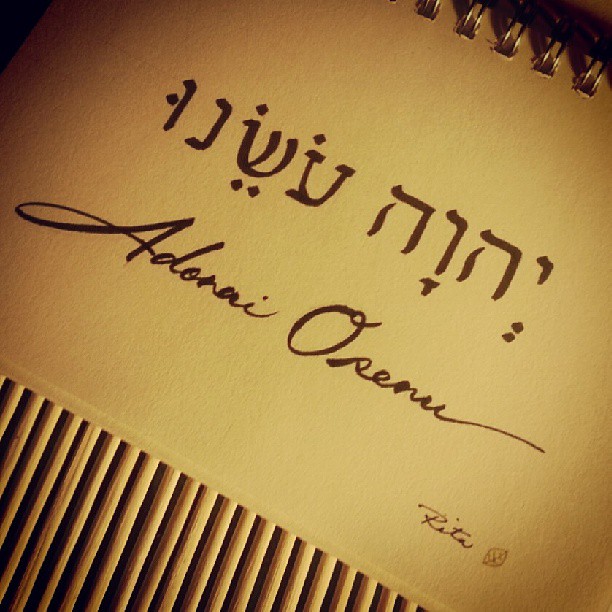 יְהוָה עֹשֵׂנוּ
Adonai Osenu
Rita